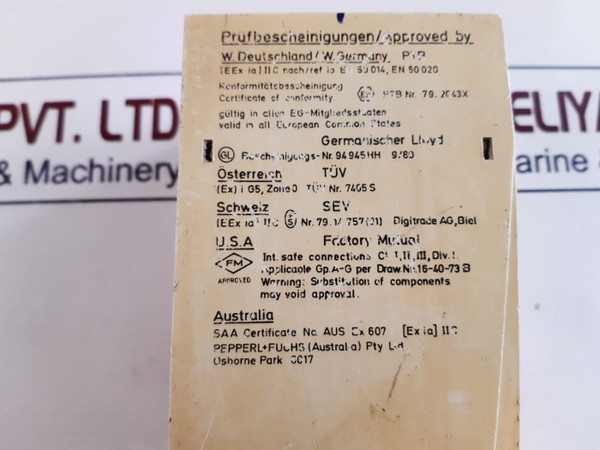 Prüfbescheinigungen/Approved by
W. Deutschland/W. Germany PTB
[EEx ia] IIC nach/ref to EN 50 014, EN 50 020
Konformitätsbescheinigung
Certificate of conformity Ex PTB Nr. 79.2043X
gültig in allen EG-Mitgliedsstaaten
valid in all European Common States
Germanischer Lloyd
GL Bescheinigungs-Nr. 94945HH 9/80
Österreich TÜV
(Ex) i G5, Zone 0 TÜV Nr. 7405 S
Schweiz SEV
[EEx ia] IIC S Nr. 79.1/ 757(01) Digitrade AG, Biel
U.S.A Factory Mutual
FM Int. safe connections Cl. I, II, III, Div. 1.
Applicable Gp. A-G per Draw.Nr. 16-40-73 B
APPROVED Warning: Substitution of components
may void approval.
Australia
SAA Certificate No. AUS Ex 607 [Ex ia] IIC
PEPPERL+FUCHS (Australia) Pty Ltd
Osborne Park 6017
PVT. LTD
& Machinery
ELIYA
arine &